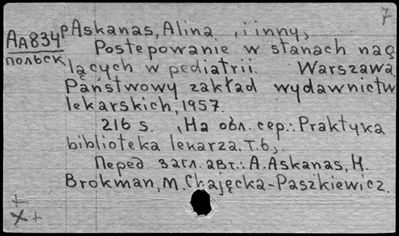 7
AA834p Askanas, Alina, i inny,
польск Postepowanie w stanach nag
lących w pediatrii. Warszawa
Państwowy zakład wydawnictw
lekarskich, 1957.
216 s. , На обл. сер.: Praktyka
biblioteka lekarza. T. 6,
Перед загл. авт.: A. Askanas, H.
Brokman, M. Chajęcka-Paszkiewicz.
+
X +